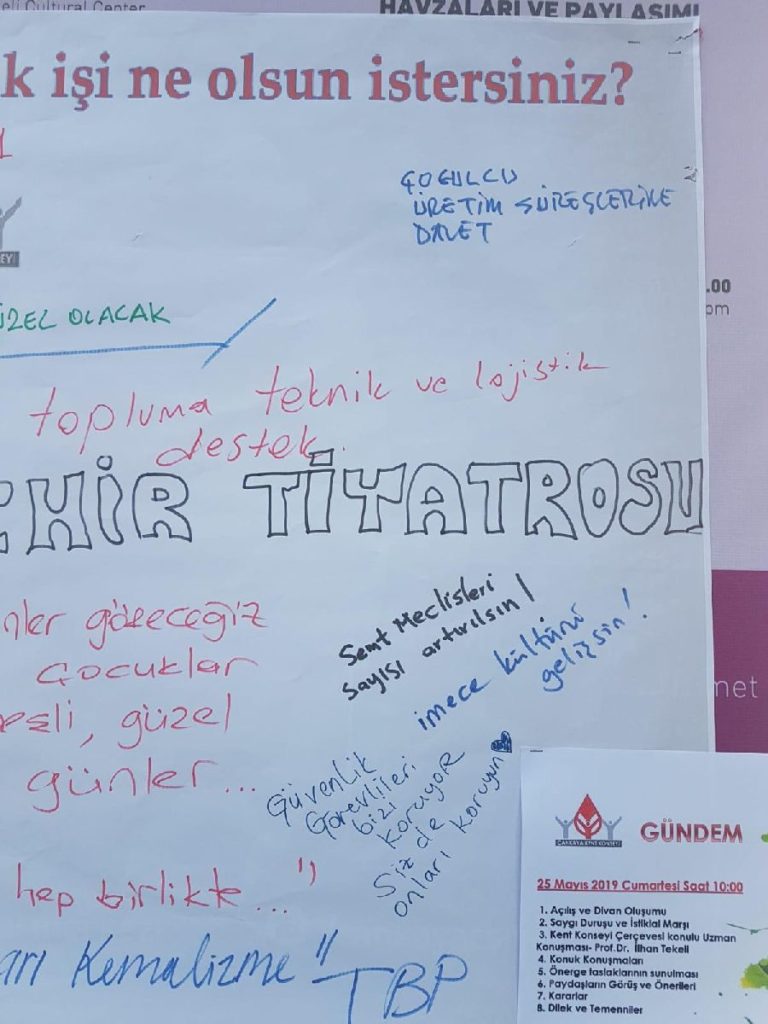 eli Cultural Center
HAVZALARI VE PAYLAŞIMI
k işi ne olsun istersiniz?
ÇOĞULCU
ÜRETİM SÜREŞLERİNE
DAVET
.00
om
EY
ÜZEL OLACAK
topluma teknik ve lojistik
destek.
EHİR TİYATROSU
nler göreceğiz
çocuklar
eşli, güzel
günler...
Semt Meclisleri
sayısı artırılsın!
imece kültürü
gelişsin!
net
Güvenlik
Görevlileri
bizi
koruyor
Siz de
onları koruyun
hep birlikte..."
arı Kemalizme"
TBP
ÇANKAYA KENT KONSEYİ
GÜNDEM
25 Mayıs 2019 Cumartesi Saat 10:00
1. Açılış ve Divan Oluşumu
2. Saygı Duruşu ve İstiklal Marşı
3. Kent Konseyi Çerçevesi konulu Uzman
Konuşması- Prof.Dr. İlhan Tekeli
4. Konuk Konuşmaları
5. Önerge taslaklarının sunulması
6. Paydaşların Görüş ve Önerileri
7. Kararlar
8. Dilek ve Temenniler